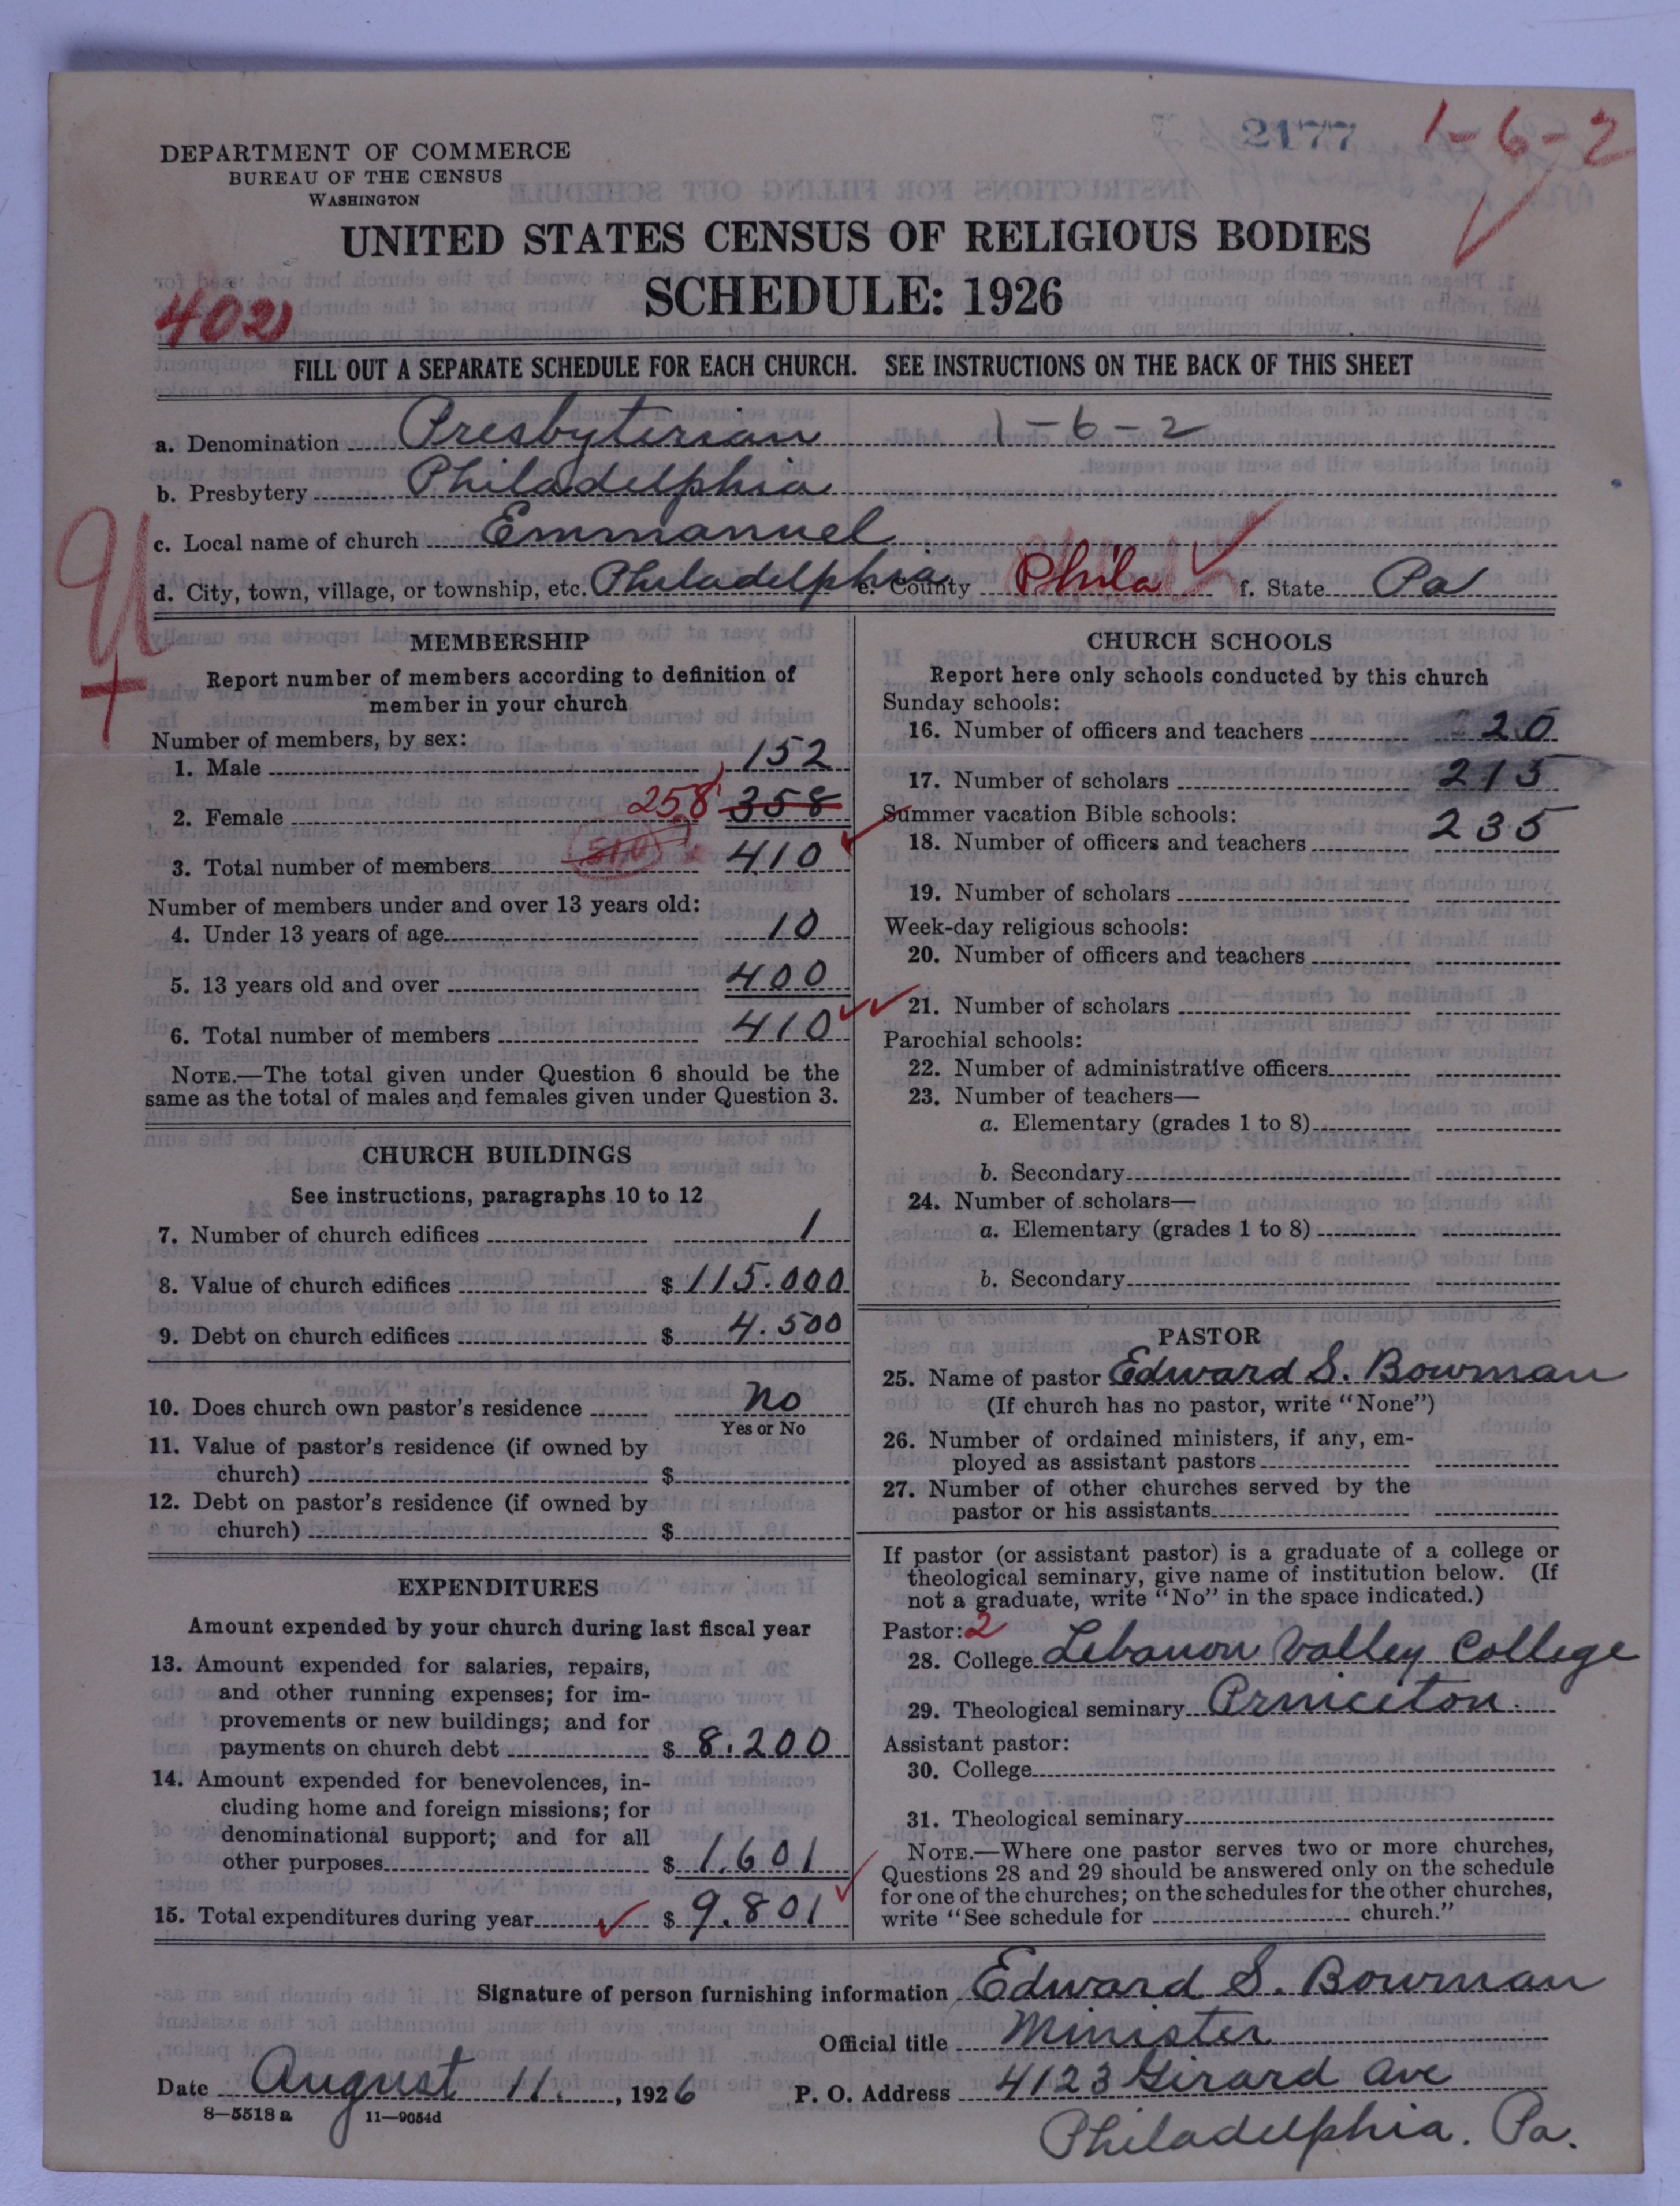 2177 1-6-2
DEPARTMENT OF COMMERCE
BUREAU OF THE CENSUS
WASHINGTON
UNITED STATES CENSUS OF RELIGIOUS BODIES
SCHEDULE: 1926
402
FILL OUT A SEPARATE SCHEDULE FOR EACH CHURCH. SEE INSTRUCTIONS ON THE BACK OF THIS SHEET
a. Denomination Presbyterian 1-6-2
b. Presbytery Philadelphia
c. Local name of church Emmanuel
d. City, town, village, or township, etc. Philadelphia e. County Phila f. State Pa
MEMBERSHIP
Report number of members according to definition of
member in your church
Number of members, by sex:
1. Male 152
2. Female 258 358
3. Total number of members 510 410
Number of members under and over 13 years old:
4. Under 13 years of age 10
5. 13 years old and over 400
6. Total number of members 410
NOTE.—The total given under Question 6 should be the
same as the total of males and females given under Question 3.
CHURCH BUILDINGS
See instructions, paragraphs 10 to 12
7. Number of church edifices 1
8. Value of church edifices $ 115.000
9. Debt on church edifices $ 4.500
10. Does church own pastor's residence no
Yes or No
11. Value of pastor's residence (if owned by
church) $
12. Debt on pastor's residence (if owned by
church) $
EXPENDITURES
Amount expended by your church during last fiscal year
13. Amount expended for salaries, repairs,
and other running expenses; for im-
provements or new buildings; and for
payments on church debt $ 8.200
14. Amount expended for benevolences, in-
cluding home and foreign missions; for
denominational support; and for all
other purposes $ 1.601
15. Total expenditures during year $ 9.801
CHURCH SCHOOLS
Report here only schools conducted by this church
Sunday schools:
16. Number of officers and teachers 20
17. Number of scholars 215
Summer vacation Bible schools: 235
18. Number of officers and teachers
19. Number of scholars
Week-day religious schools:
20. Number of officers and teachers
21. Number of scholars
Parochial schools:
22. Number of administrative officers
23. Number of teachers—
a. Elementary (grades 1 to 8)
b. Secondary
24. Number of scholars—
a. Elementary (grades 1 to 8)
b. Secondary
PASTOR
25. Name of pastor Edward S. Bowman
(If church has no pastor, write "None")
26. Number of ordained ministers, if any, em-
ployed as assistant pastors
27. Number of other churches served by the
pastor or his assistants
If pastor (or assistant pastor) is a graduate of a college or
theological seminary, give name of institution below. (If
not a graduate, write "No" in the space indicated.)
Pastor: 2
28. College Lebanon Valley College
29. Theological seminary Princeton.
Assistant pastor:
30. College
31. Theological seminary
NOTE.—Where one pastor serves two or more churches,
Questions 28 and 29 should be answered only on the schedule
for one of the churches; on the schedules for the other churches,
write "See schedule for church."
Signature of person furnishing information Edward S. Bowman
Official title Minister
Date August 11., 1926 P. O. Address 4123 Girard Ave
8—5518 a 11—9054d
Philadelphia. Pa.